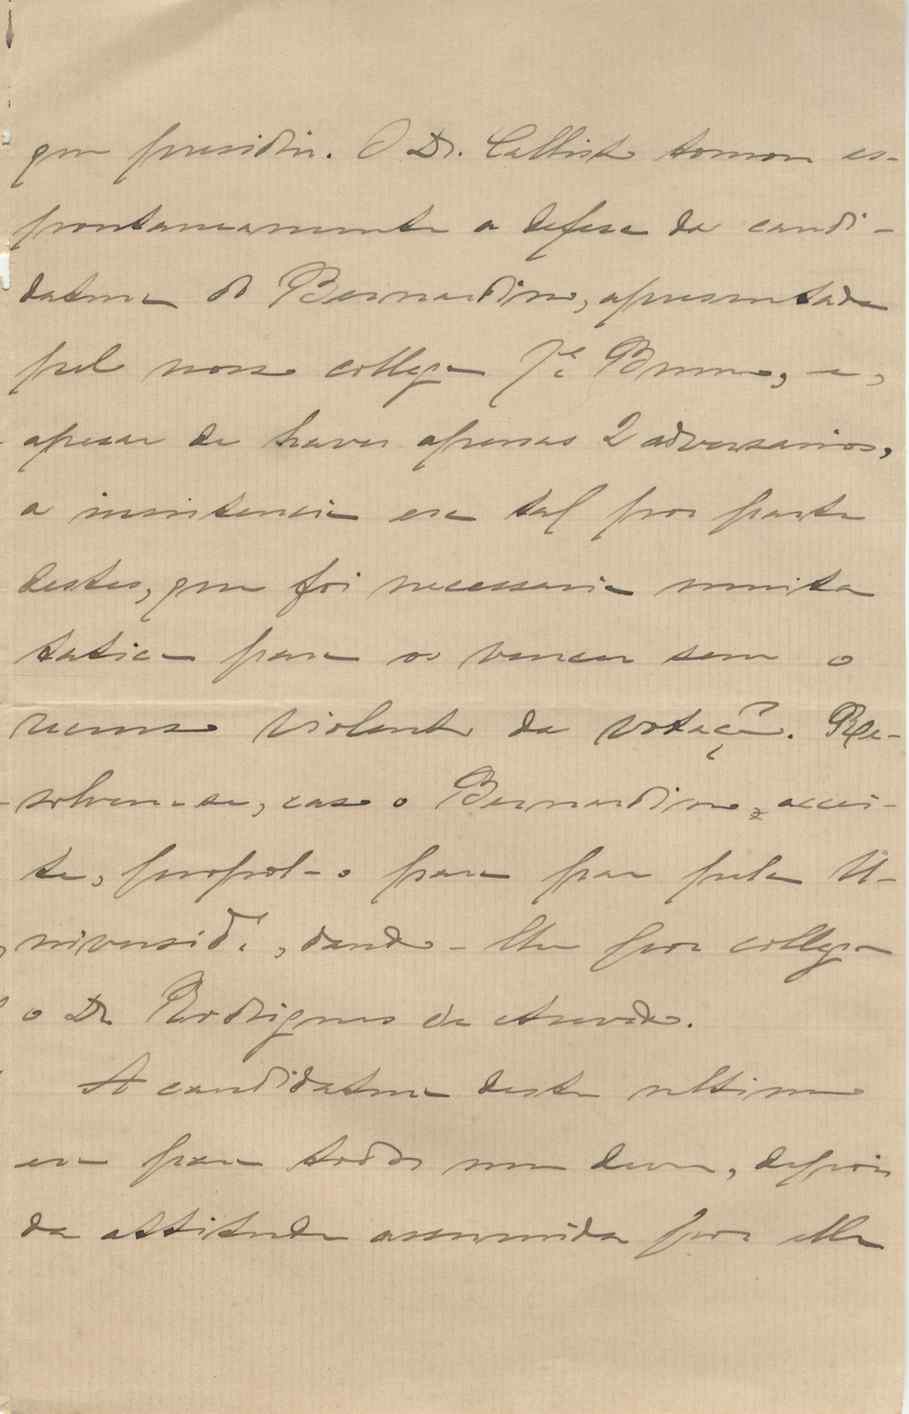 que presidiu. O Dr. Callisto tomou es-
pontaneamente a defesa da candi-
datura do Bernardino, apresentada
pelo nosso collega Jé Bruno, e,
apesar de haver apenas 2 adversarios,
a insistencia era tal por parte
destes, que foi necessaria muita
tatica para os vencer sem o
recurso violento da votação. Re-
solveu-se, caso o Bernardino accei-
te, propol-o para par pela U-
niversid.e, dando-lhe por collega
o Dr Rodrigues de Azevedo.
A candidatura deste ultimo
era para todos um dever, depois
da attitude assumida por elle